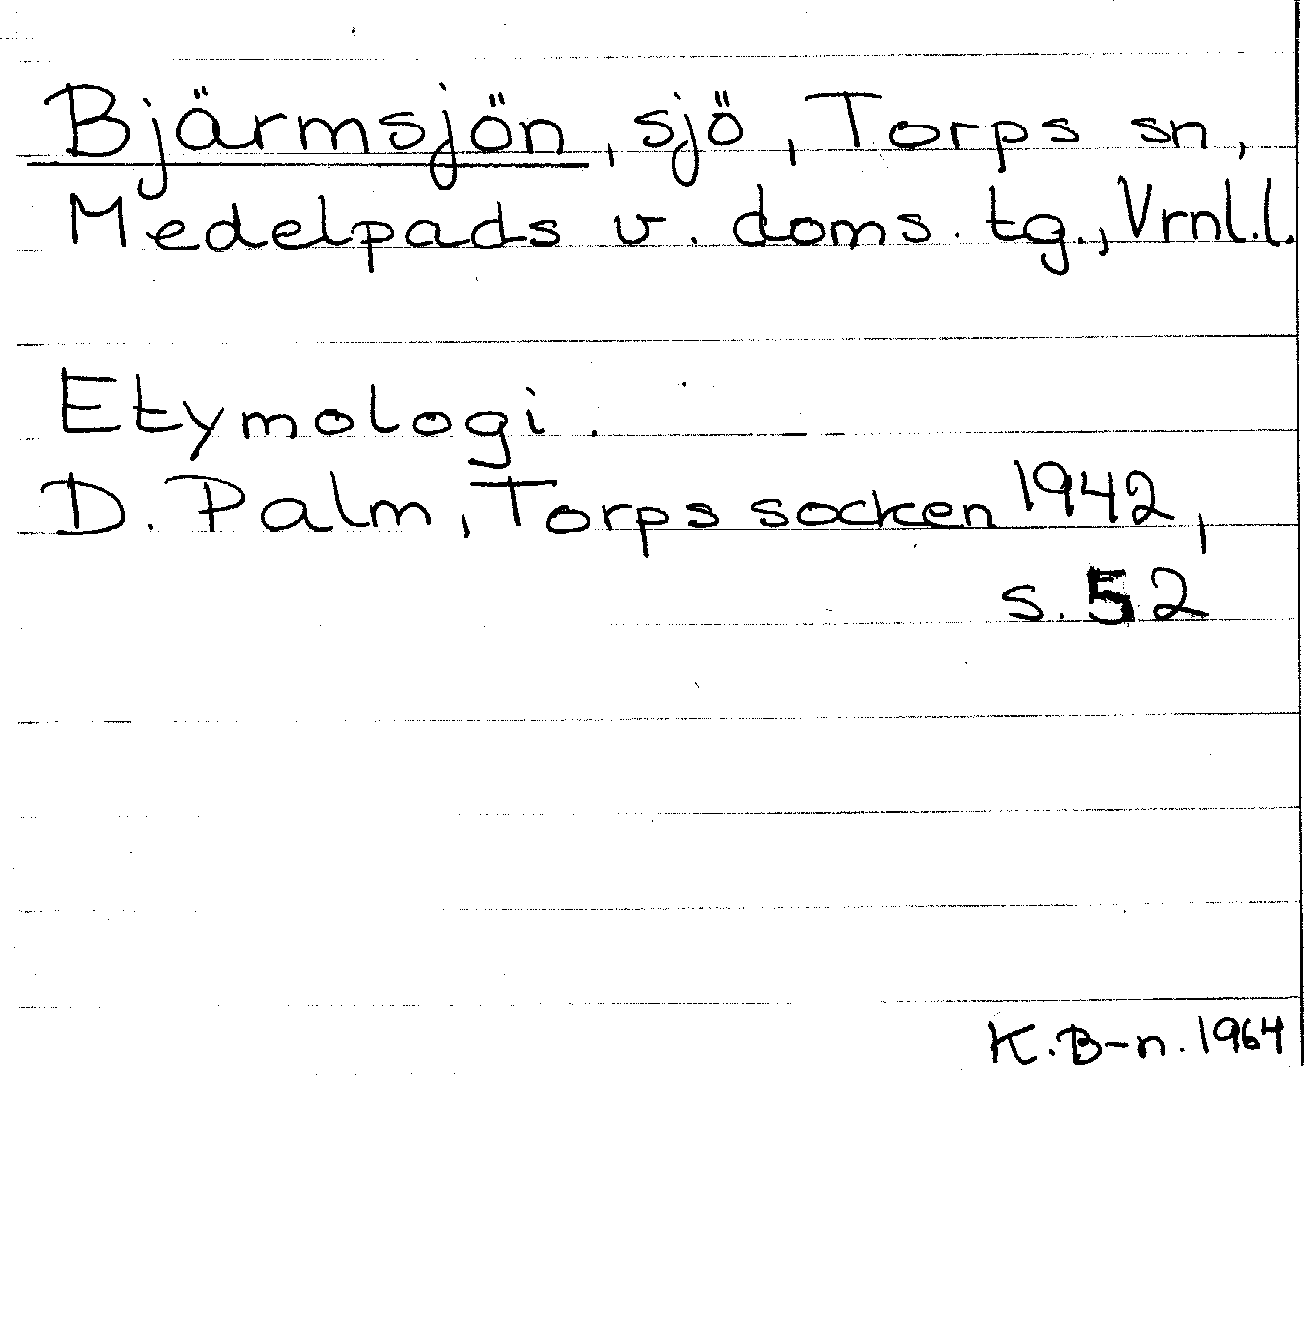 Bjärmsjön, sjö, Torps sn,
Medelpads v. doms. tg., Vrnl.l.
Etymologi.
D. Palm, Torps socken 1942,
s. 52
K. B-n. 1964